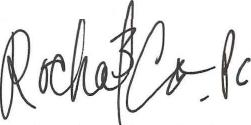 Rocha & Co. PC